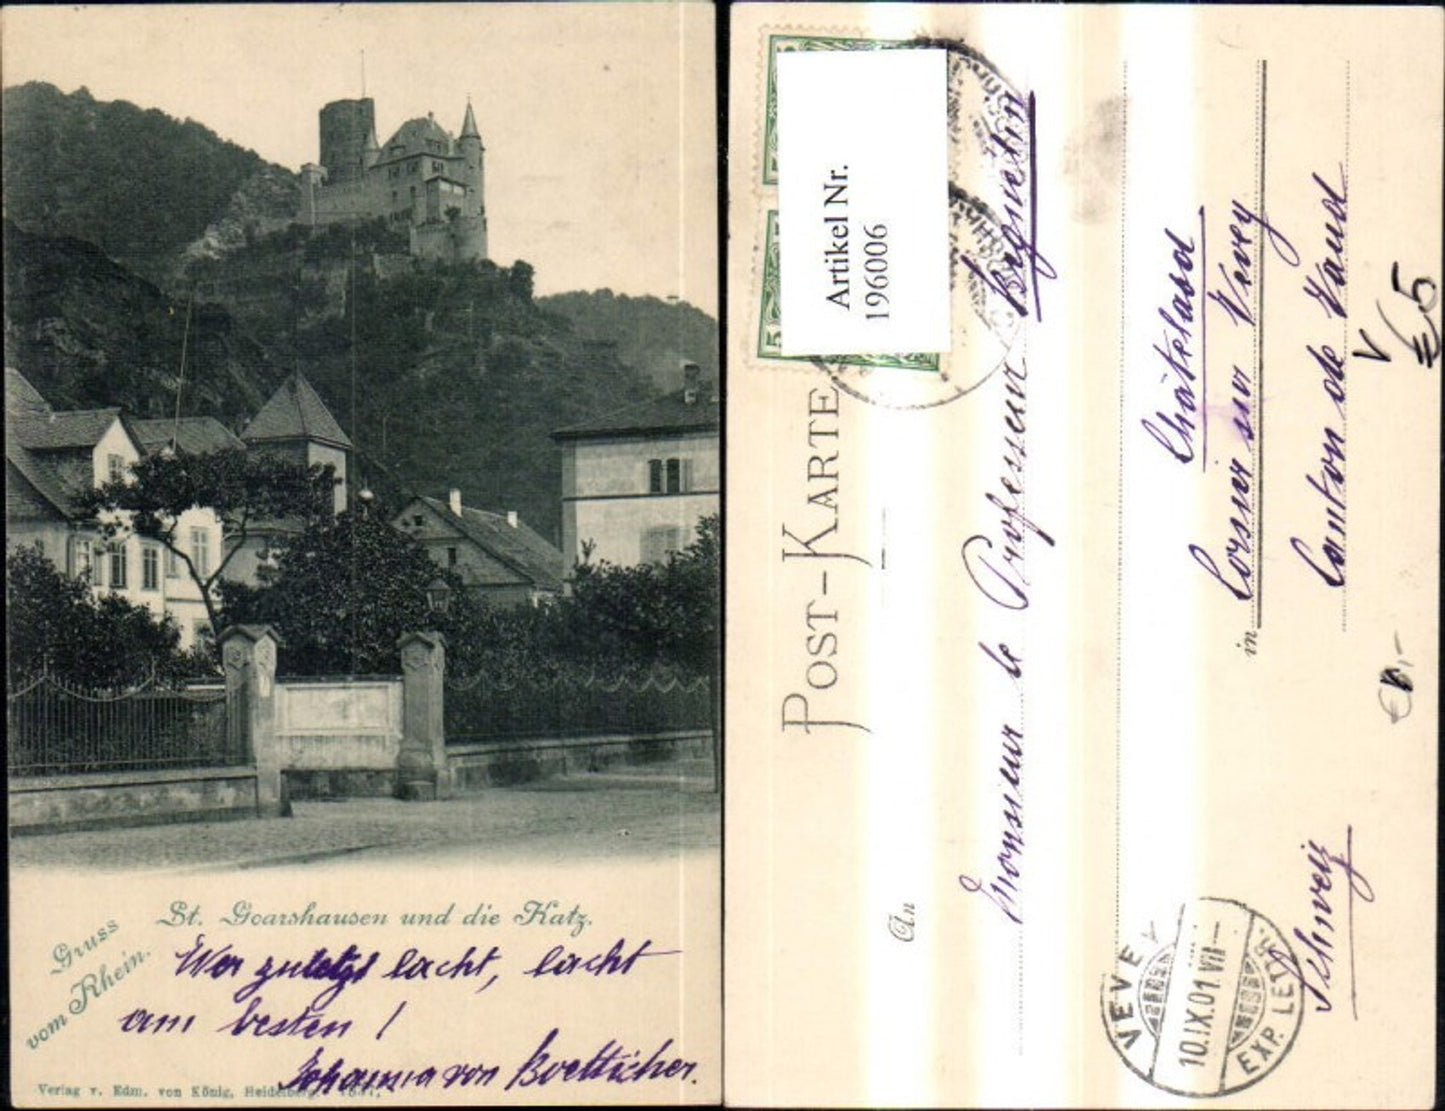 St. Goarshausen und die Katz.
Gruss
vom Rhein.
Wer zuletzt lacht, lacht
am besten!
Johanna von Boetticher.
Verlag v. Edm. von König, Heidelberg.
POST-KARTE
An
Monsieur le Professeur
Châtelard
in Corsier sur Vevey
Canton de Vaud
Schweiz
Artikel Nr.
196006
5
5
VEVEY
10.IX.01.VII-
EXP. LETTR.
V
€5